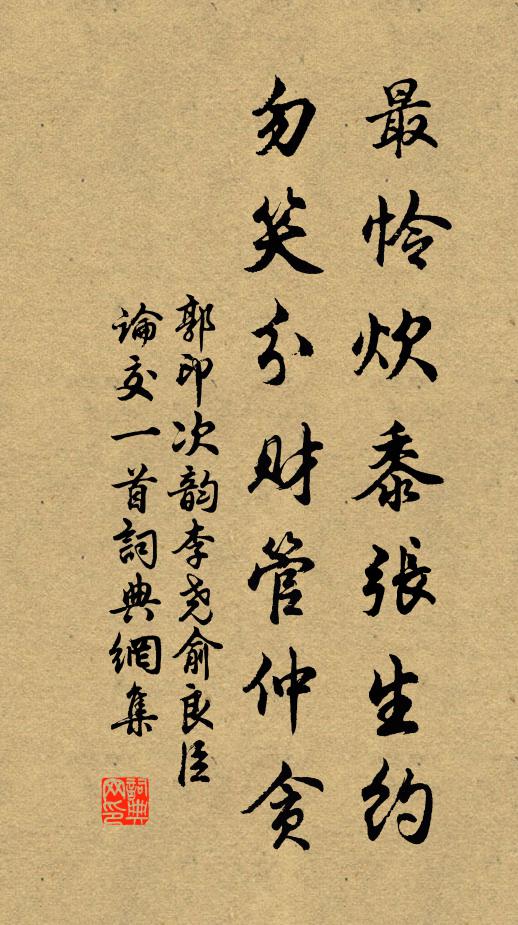 最怜炊黍張生約
勿笑分財管仲貪
郭印次韵李尧俞良臣
論交一首詞典網集
詞典网印